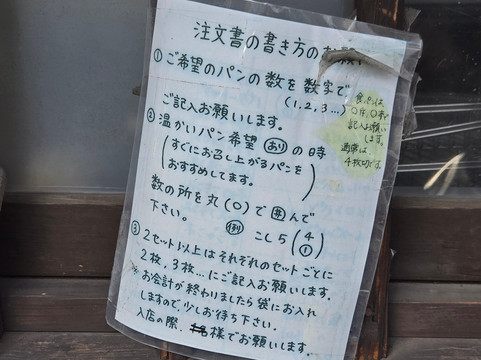 注文書の書き方のお願い
① ご希望のパンの数を数字で
(1,2,3…)
ご記入お願いします。
② 温かいパン希望 あり の時
(すぐにお召し上がるパンを
おすすめしてます。)
数の所を丸(〇)で囲んで
下さい。 例 こし5 (4 ①)
③ 2セット以上はそれぞれのセットごとに
2枚、3枚…にご記入お願いします。
※お会計が終わりましたら袋にお入れ
しますので少しお待ち下さい。
入店の際、 様でお願いします。
食パンは、
記入お願い
します。
4枚切です。